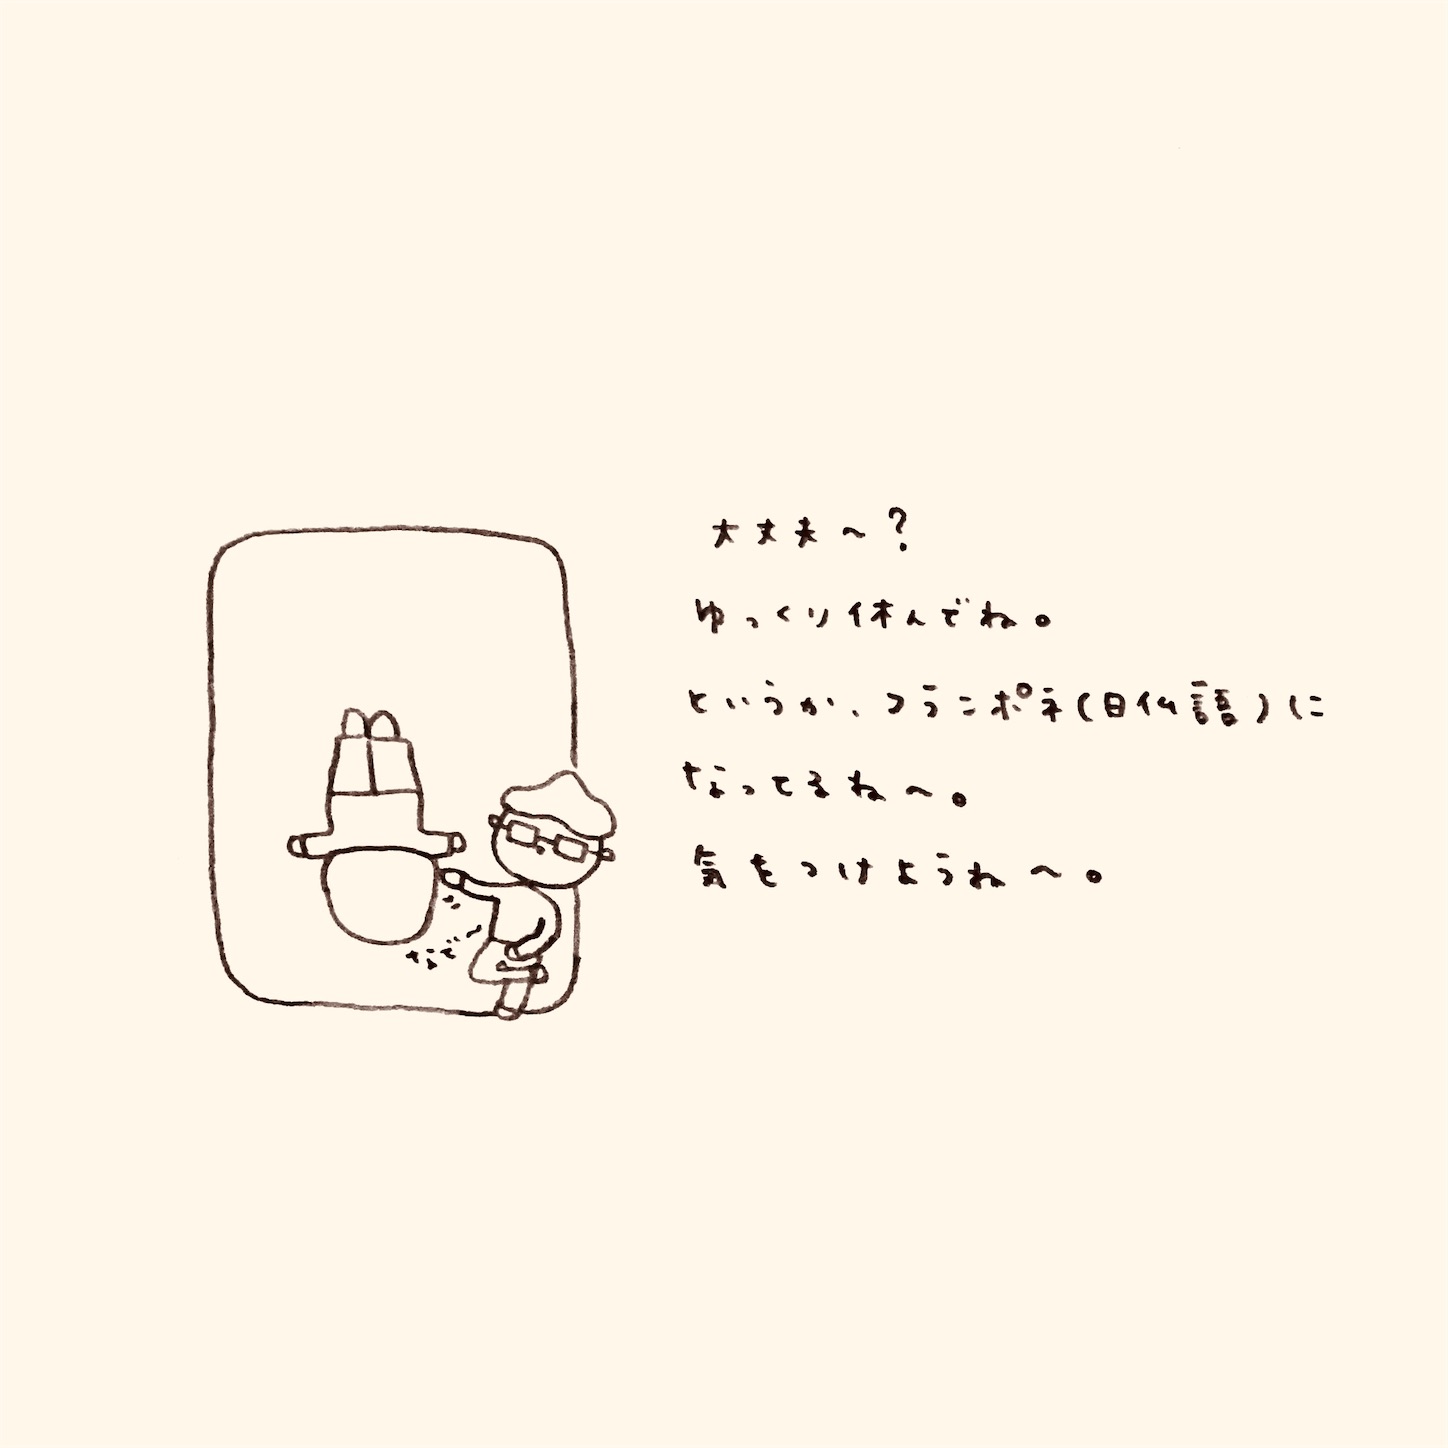 大丈夫〜?
ゆっくり休んでね。
というか、フラニポネ(日仏語)に
なってるね〜。
気をつけようね〜。
なで〜